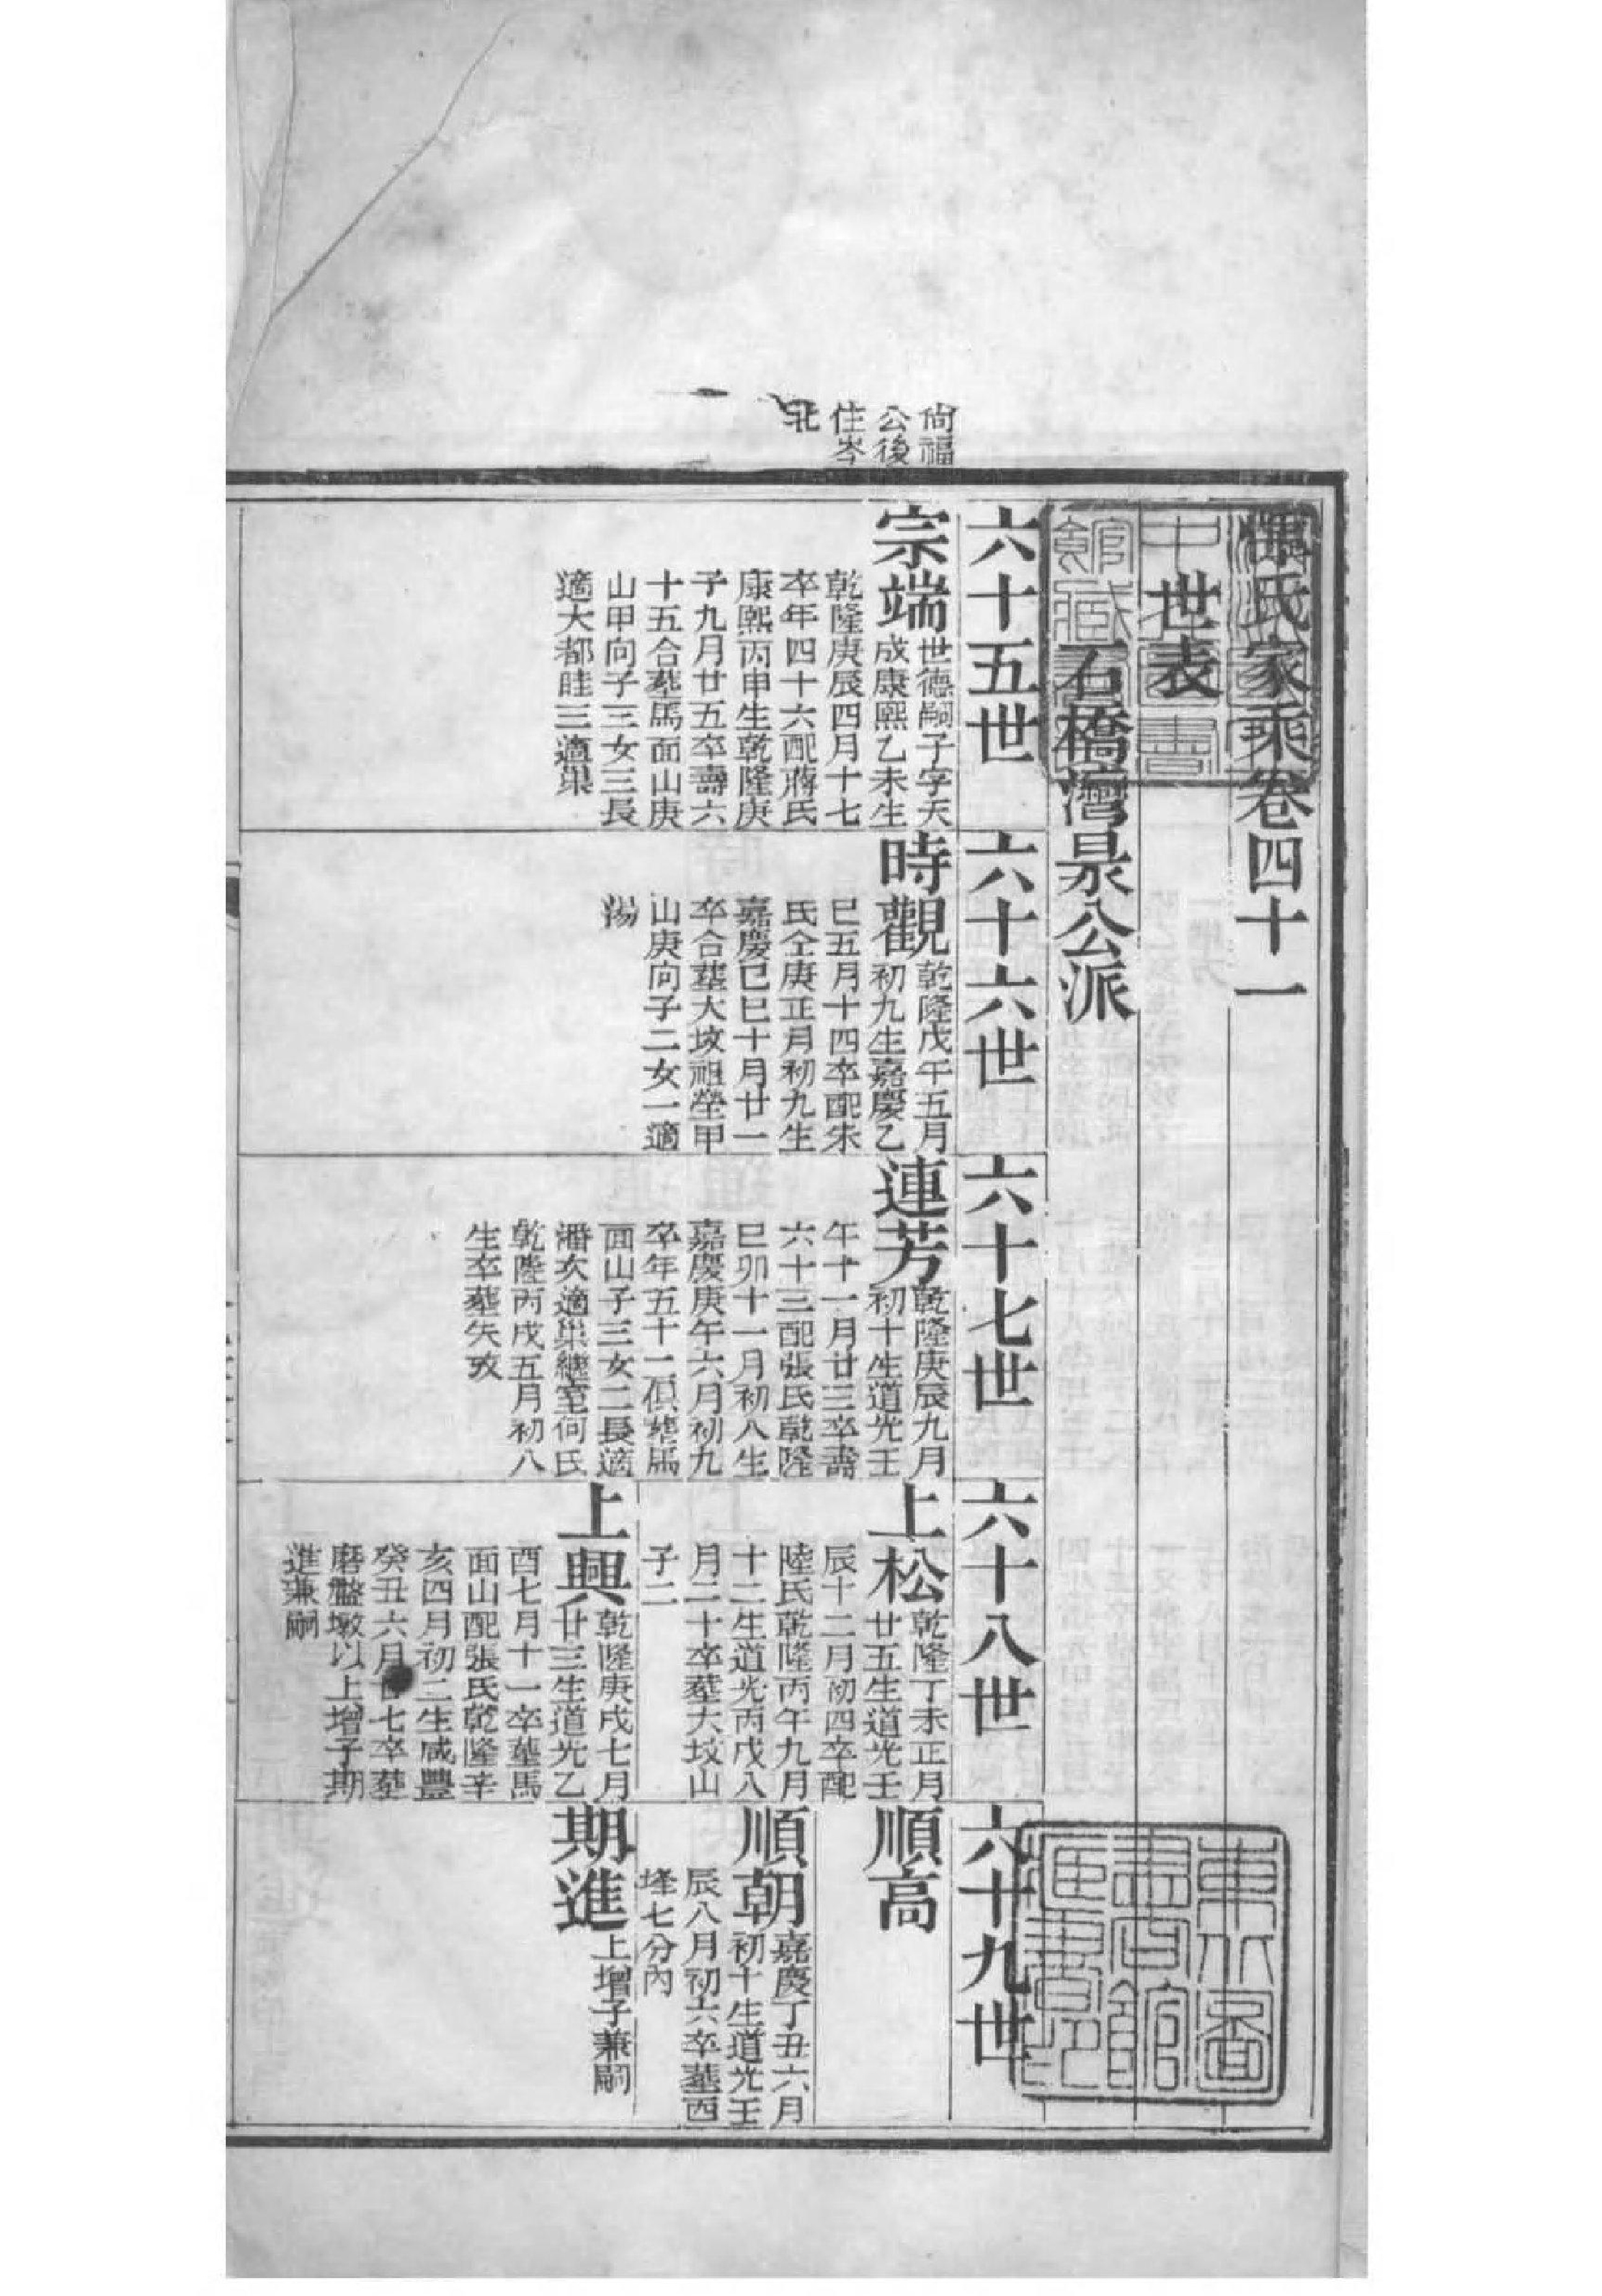 惲氏家乘卷四十一
世表
石橋灣景公派
尙福
公後
住岑
北
六十五世
宗端
世德嗣子字天
成康熙乙未生
乾隆庚辰四月十七
卒年四十六配蔣氏
康熙丙申生乾隆庚
子九月廿五卒壽六
十五合塟馬面山庚
山甲向子三女三長
適大都眭三適巢
六十六世
時觀
乾隆戊午五月
初九生嘉慶乙
巳五月十四卒配朱
氏仝庚正月初九生
嘉慶己巳十月廿一
卒合塟大坟祖塋甲
山庚向子二女一適
湯
六十七世
連芳
乾隆庚辰九月
初十生道光壬
午十一月廿三卒壽
六十三配張氏乾隆
己卯十一月初八生
嘉慶庚午六月初九
卒年五十二俱塟馬
面山子三女二長適
潘次適巢繼室何氏
乾隆丙戌五月初八
生卒塟失攷
六十八世
上松
乾隆丁未正月
廿五生道光壬
辰十二月初四卒配
陸氏乾隆丙午九月
十二生道光丙戌八
月二十卒塟大坟山
子二
上興
乾隆庚戌七月
廿三生道光乙
酉七月十一卒塟馬
面山配張氏乾隆辛
亥四月初二生咸豐
癸丑六月七卒塟
磨盤墩以上增子期
進兼嗣
六十九世
順高
順朝
嘉慶丁丑六月
初十生道光壬
辰八月初六卒塟西
垰七分內
期進
上增子兼嗣